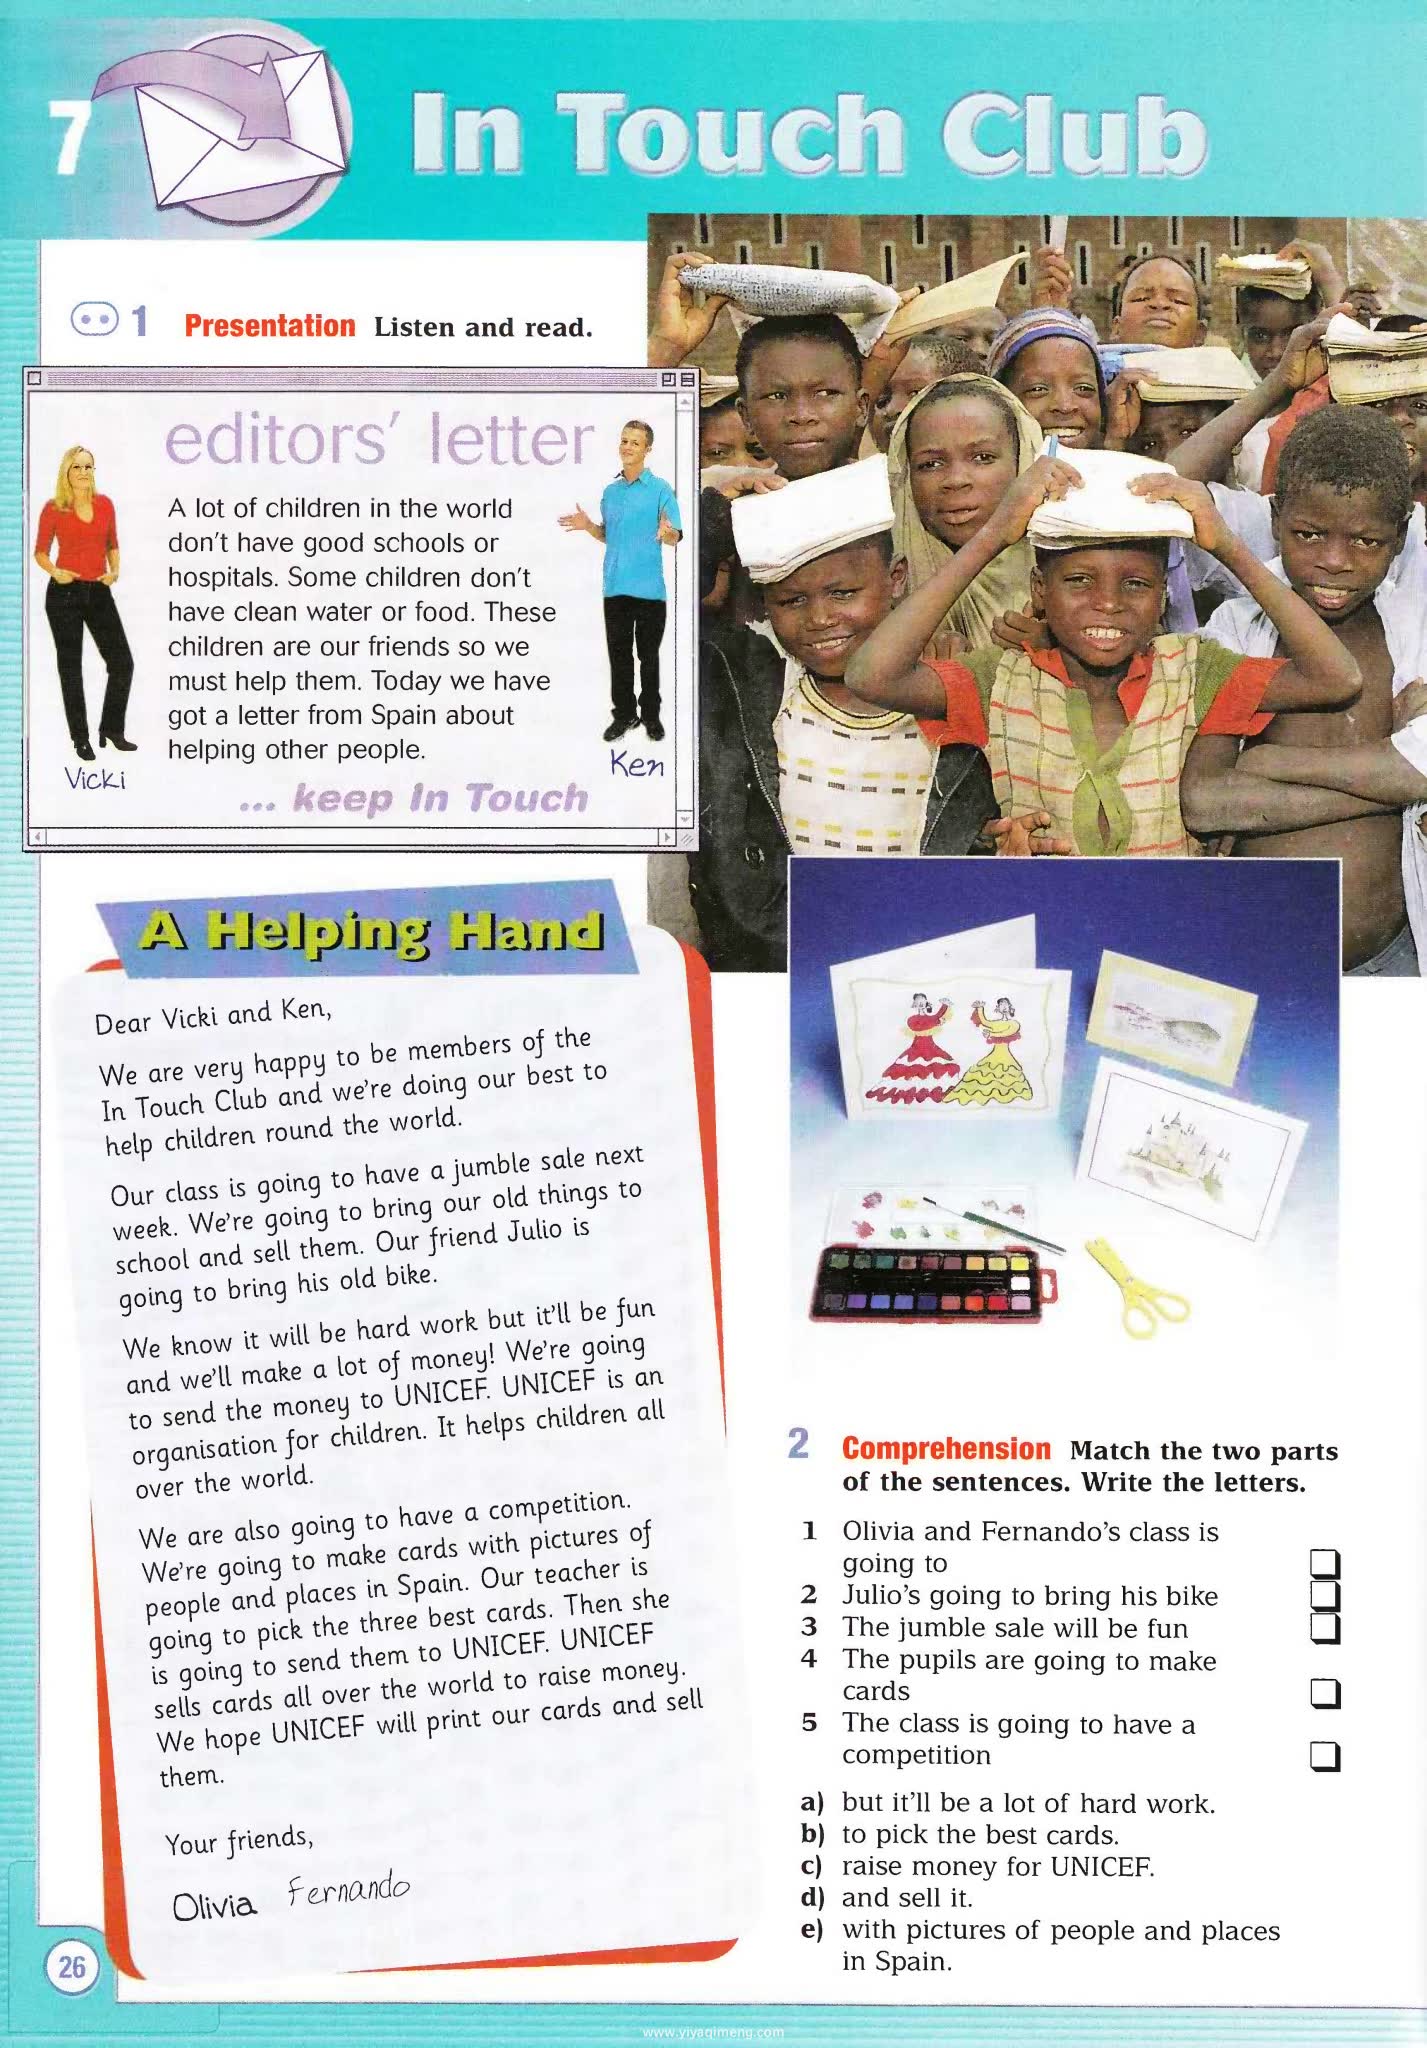 7
In Touch Club
1 Presentation Listen and read.
editors' letter
A lot of children in the world
don't have good schools or
hospitals. Some children don't
have clean water or food. These
children are our friends so we
must help them. Today we have
got a letter from Spain about
helping other people.
Vicki
Ken
... keep In Touch
A Helping Hand
Dear Vicki and Ken,
We are very happy to be members of the
In Touch Club and we're doing our best to
help children round the world.
Our class is going to have a jumble sale next
week. We're going to bring our old things to
school and sell them. Our friend Julio is
going to bring his old bike.
We know it will be hard work but it'll be fun
and we'll make a lot of money! We're going
to send the money to UNICEF. UNICEF is an
organisation for children. It helps children all
over the world.
We are also going to have a competition.
We're going to make cards with pictures of
people and places in Spain. Our teacher is
going to pick the three best cards. Then she
is going to send them to UNICEF. UNICEF
sells cards all over the world to raise money.
We hope UNICEF will print our cards and sell
them.
Your friends,
Olivia Fernando
2 Comprehension Match the two parts
of the sentences. Write the letters.
1 Olivia and Fernando's class is
going to
2 Julio's going to bring his bike
3 The jumble sale will be fun
4 The pupils are going to make
cards
5 The class is going to have a
competition
a) but it'll be a lot of hard work.
b) to pick the best cards.
c) raise money for UNICEF.
d) and sell it.
e) with pictures of people and places
in Spain.
26
www.yiyaqimeng.com